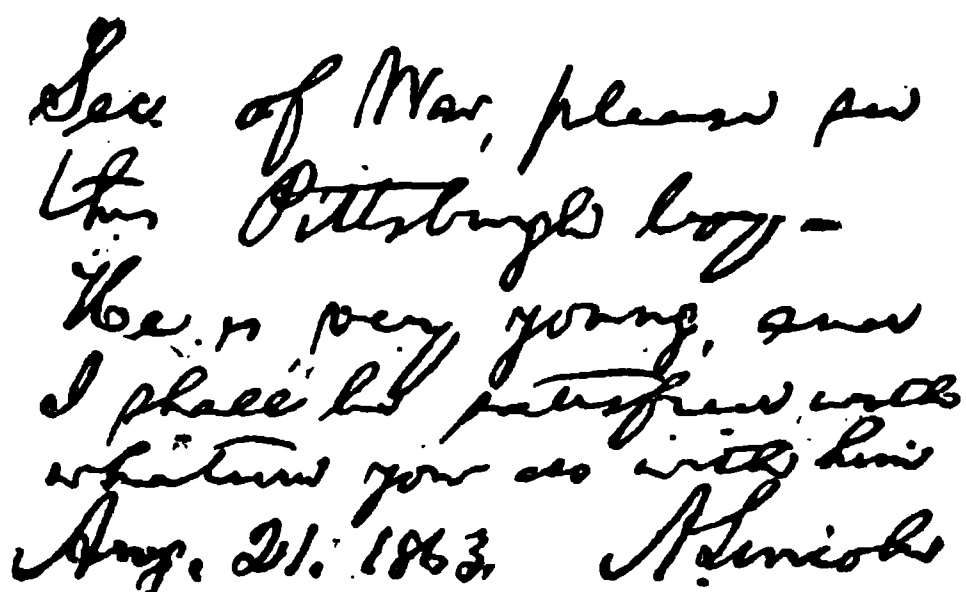 Sec. of War, please see
this Pittsburgh boy—
He is very young, and
I shall be satisfied with
whatever you do with him
Aug. 21. 1863. A. Lincoln